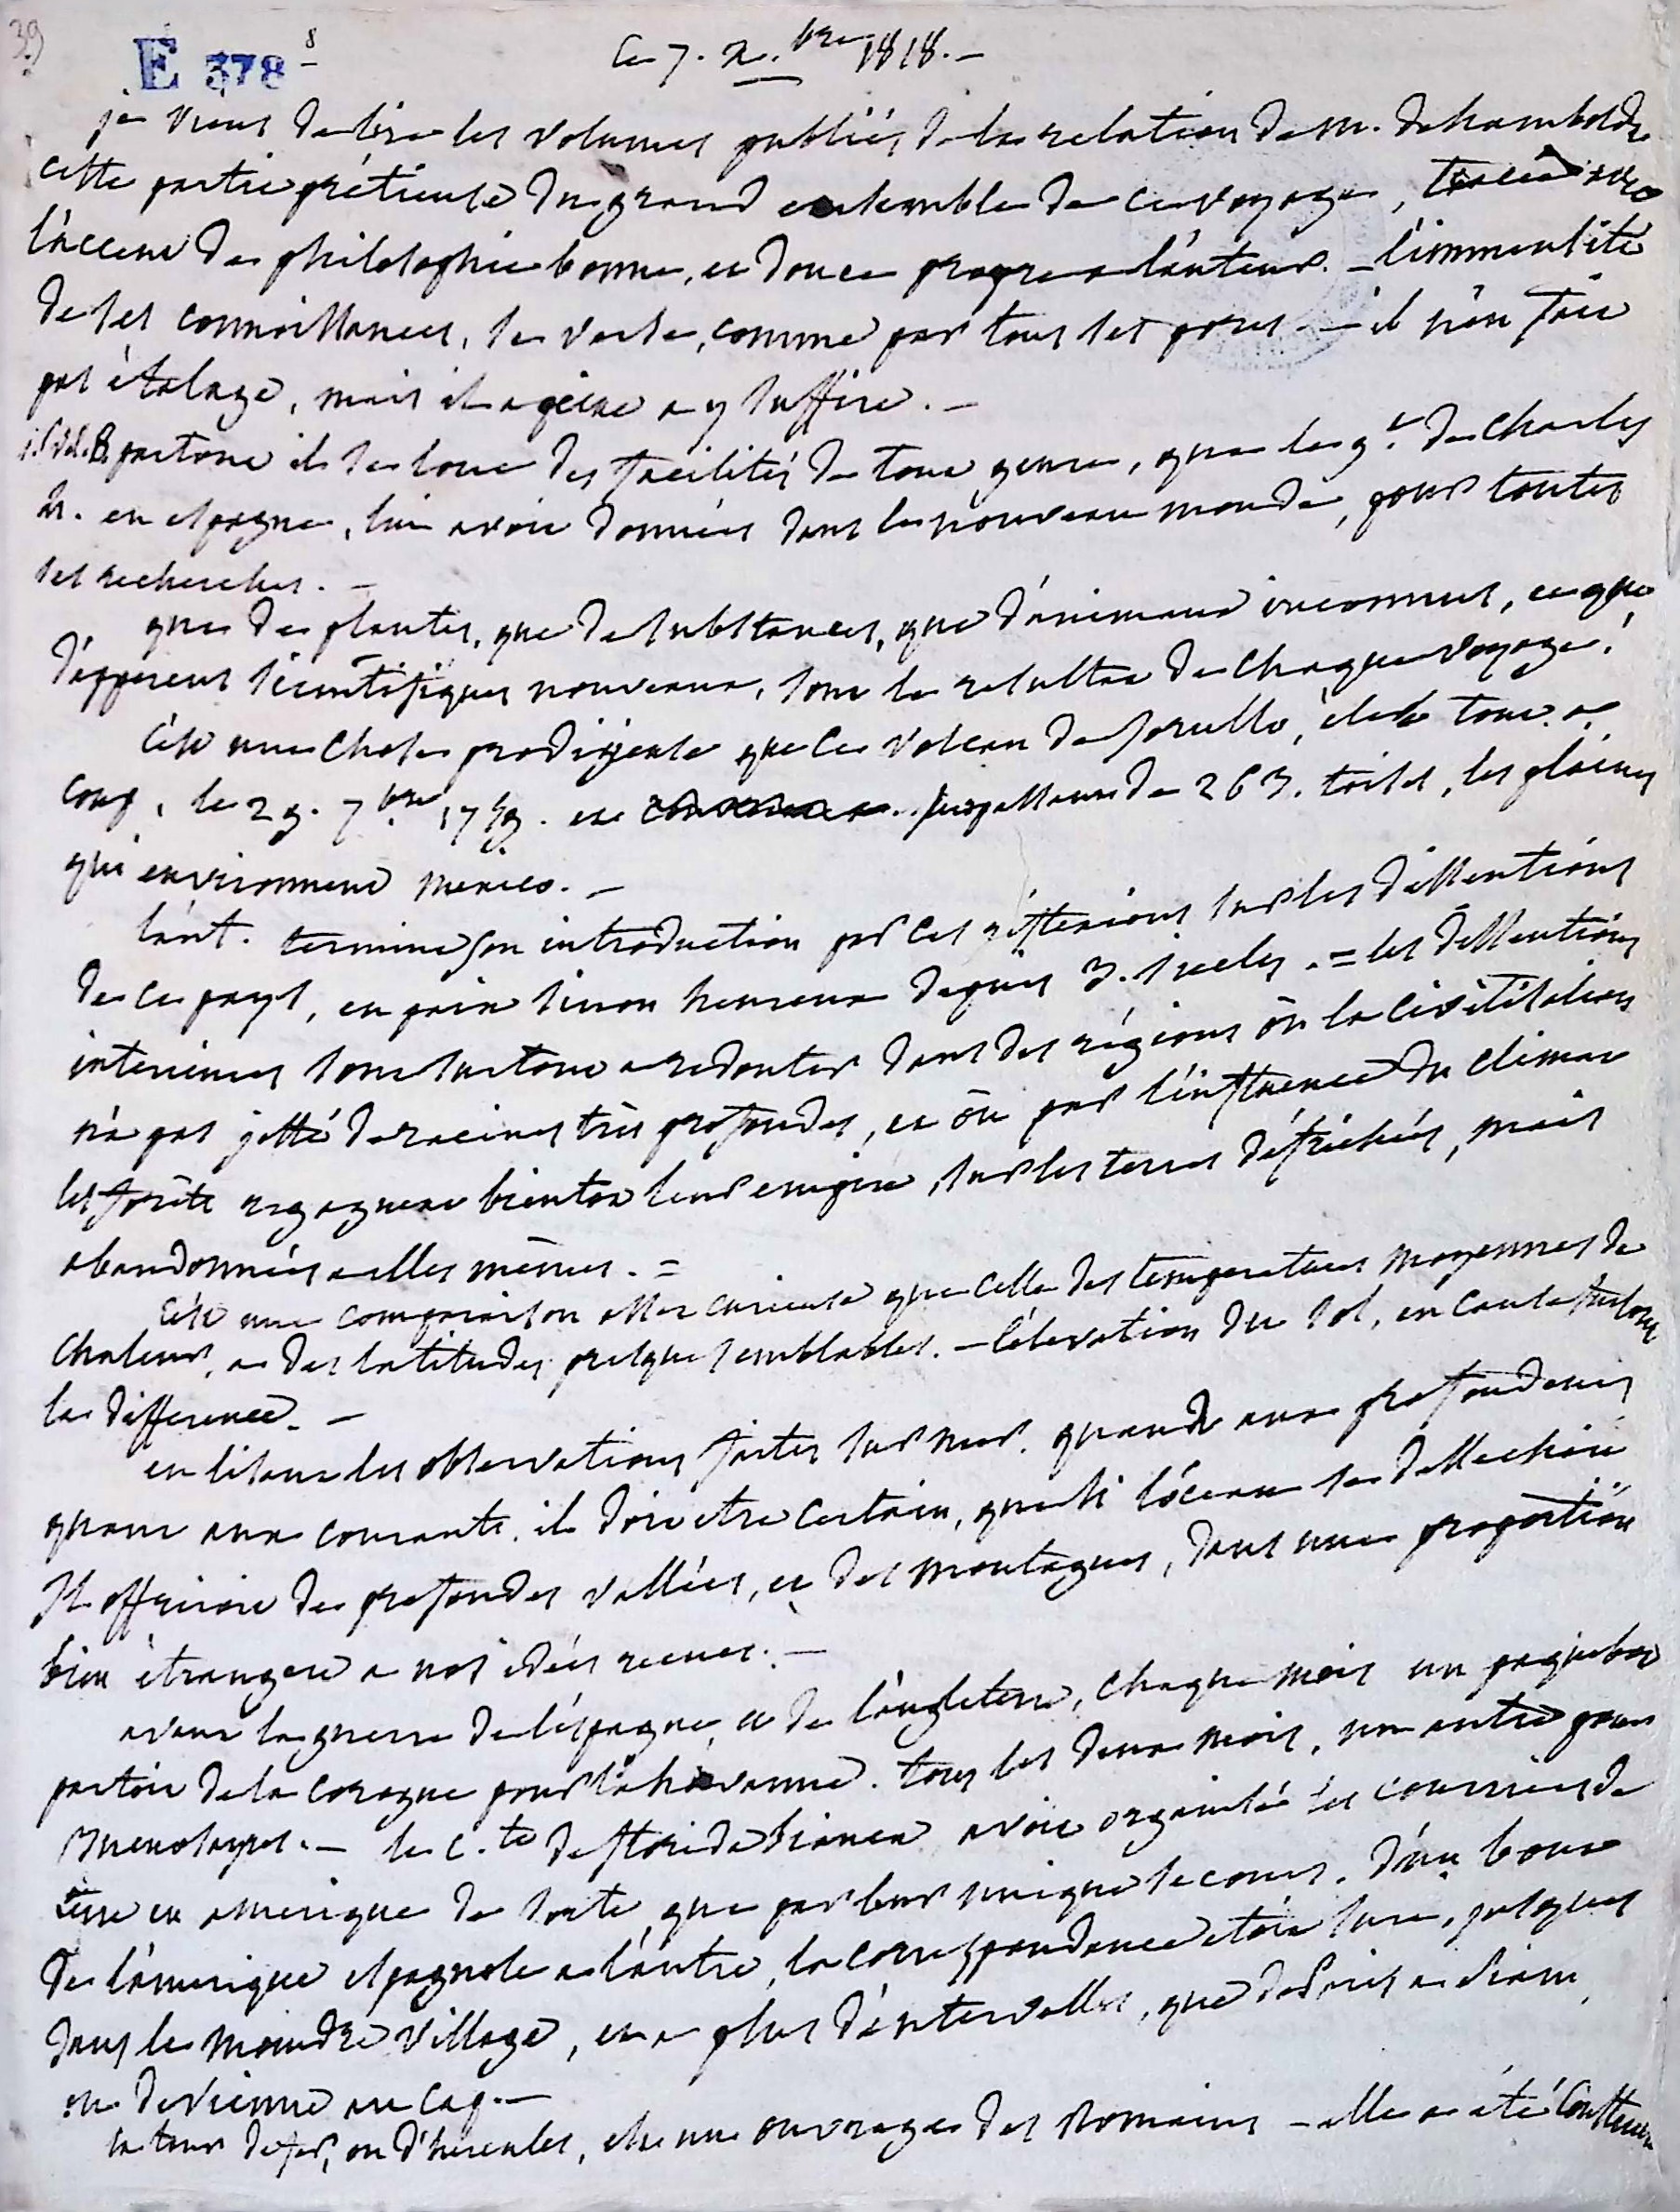 39
E 378 8
Ce 7. X.bre 1818. —
je viens de lire les volumes publiés de la relation de M. de humboldt
cette partie prétieuse du grand ensemble de ce voyage, tracée avec
l'accent de philosophie bonne, et douce propre a l'auteur. — l'immensité
de ses connoissances, se verse, comme par tous les pores — il n'en fait
pas étalage, mais il a peine a y suffire. —
partout il se loue des facilités de tout genre, que le g.t de Charles
4. en espagne, lui avoit données dans le nouveau monde, pour toutes
ses recherches. —
que de plantes, que de substances, que d'animaux inconnus, et que
d'apperçus scientifiques nouveaux, sont le resultat de chaque voyage!
c'est une chose prodigieuse que ce volcan de Jorullo, élevé tout a
coup, le 29. 7bre 1759. et surpassant de 263. toises, les plaines
qui environnent mexico. —
l'aut. termine son introduction par ces réflexions sur les dissentions
de ce pays, en paix sinon heureux depuis 3. siecles. = les dissentions
interieures sont surtout a redouter dans des régions où la civilisation
n'a pas jetté de racines très profondes, et où par l'influence du climat
les forêts regagnent bientot leur empire, sur les terres défrichées, mais
abandonnées a elles mêmes. =
c'est une comparaison assez curieuse que celle des temperatures moyennes de
chaleur, a des latitudes presque semblables. — l'élevation du sol, en cause surtout
la difference. —
en lisant les observations faites sur mer. quand aux profondeurs
quant aux courants. il doit etre certain, que si l'océan se dessechoit
Il offriroit de profondes vallées, et des montagnes, dans une proportion
bien étrangere a nos idées recues. —
avant la guerre de l'éspagne, et de l'angleterre, chaque mois un paquebot
partoit de la corogne pour la havanne. tous les deux mois, un autre pour
Buenosayres. — le c.te de florida blanca avoit organisé les courriers de
terre en amerique de sorte, que par leur unique secours. d'un bout
de l'amerique espagnole a l'autre, la correspondance etoit sure, jusques
dans le moindre village, et a plus d'intervalles, que de Paris a Siam,
ou de Vienne au Cap. —
la tour de fer, ou d'hercules, est un ouvrage des Romains — elle a été